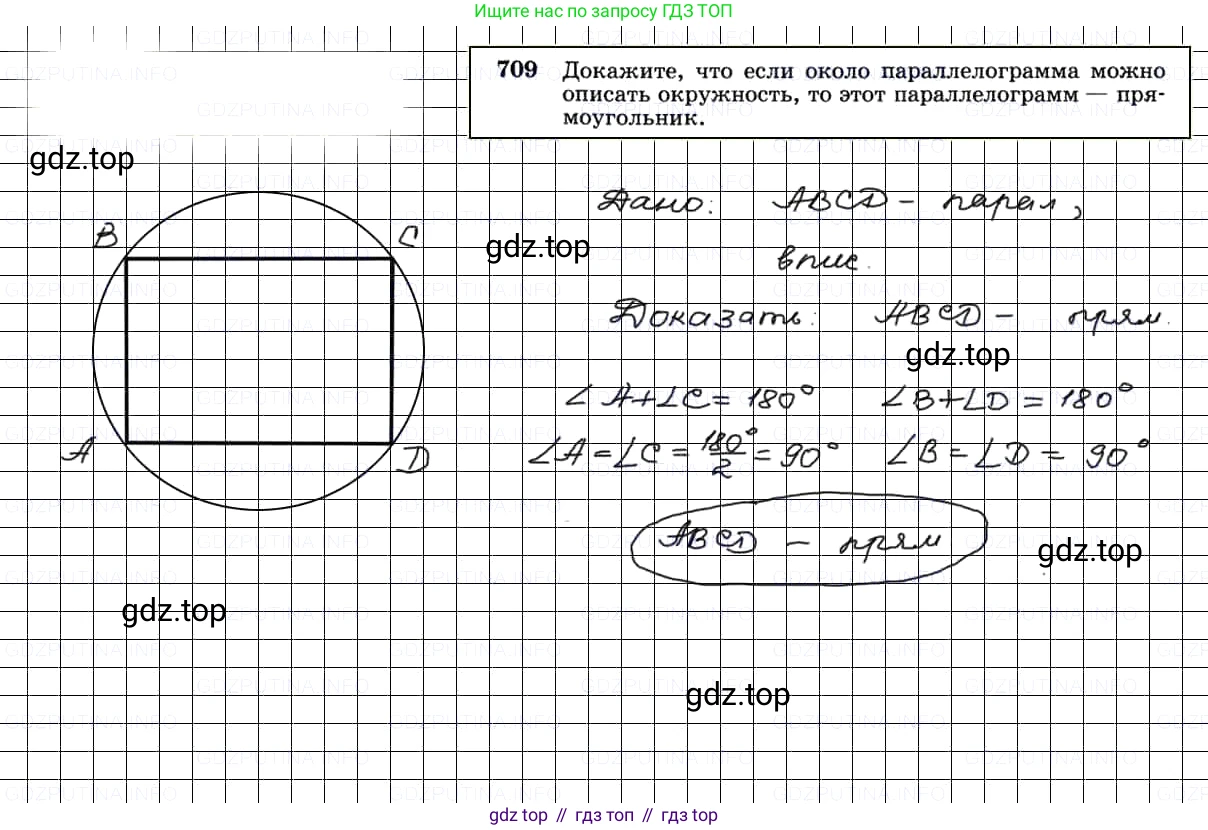 Ищите нас по запросу ГДЗ ТОП
709 Докажите, что если около параллелограмма можно
описать окружность, то этот параллелограмм — пря-
моугольник.
gdz.top
Дано: ABCD - парал,
B C
gdz.top
впис.
Доказать: ABCD - прям.
gdz.top
∠A+∠C=180° ∠B+∠D=180°
A D
∠A=∠C=180°/2=90° ∠B=∠D=90°
ABCD - прям
gdz.top
gdz.top
gdz.top
gdz top // гдз топ // гдз top
GDZPUTINA.INFO